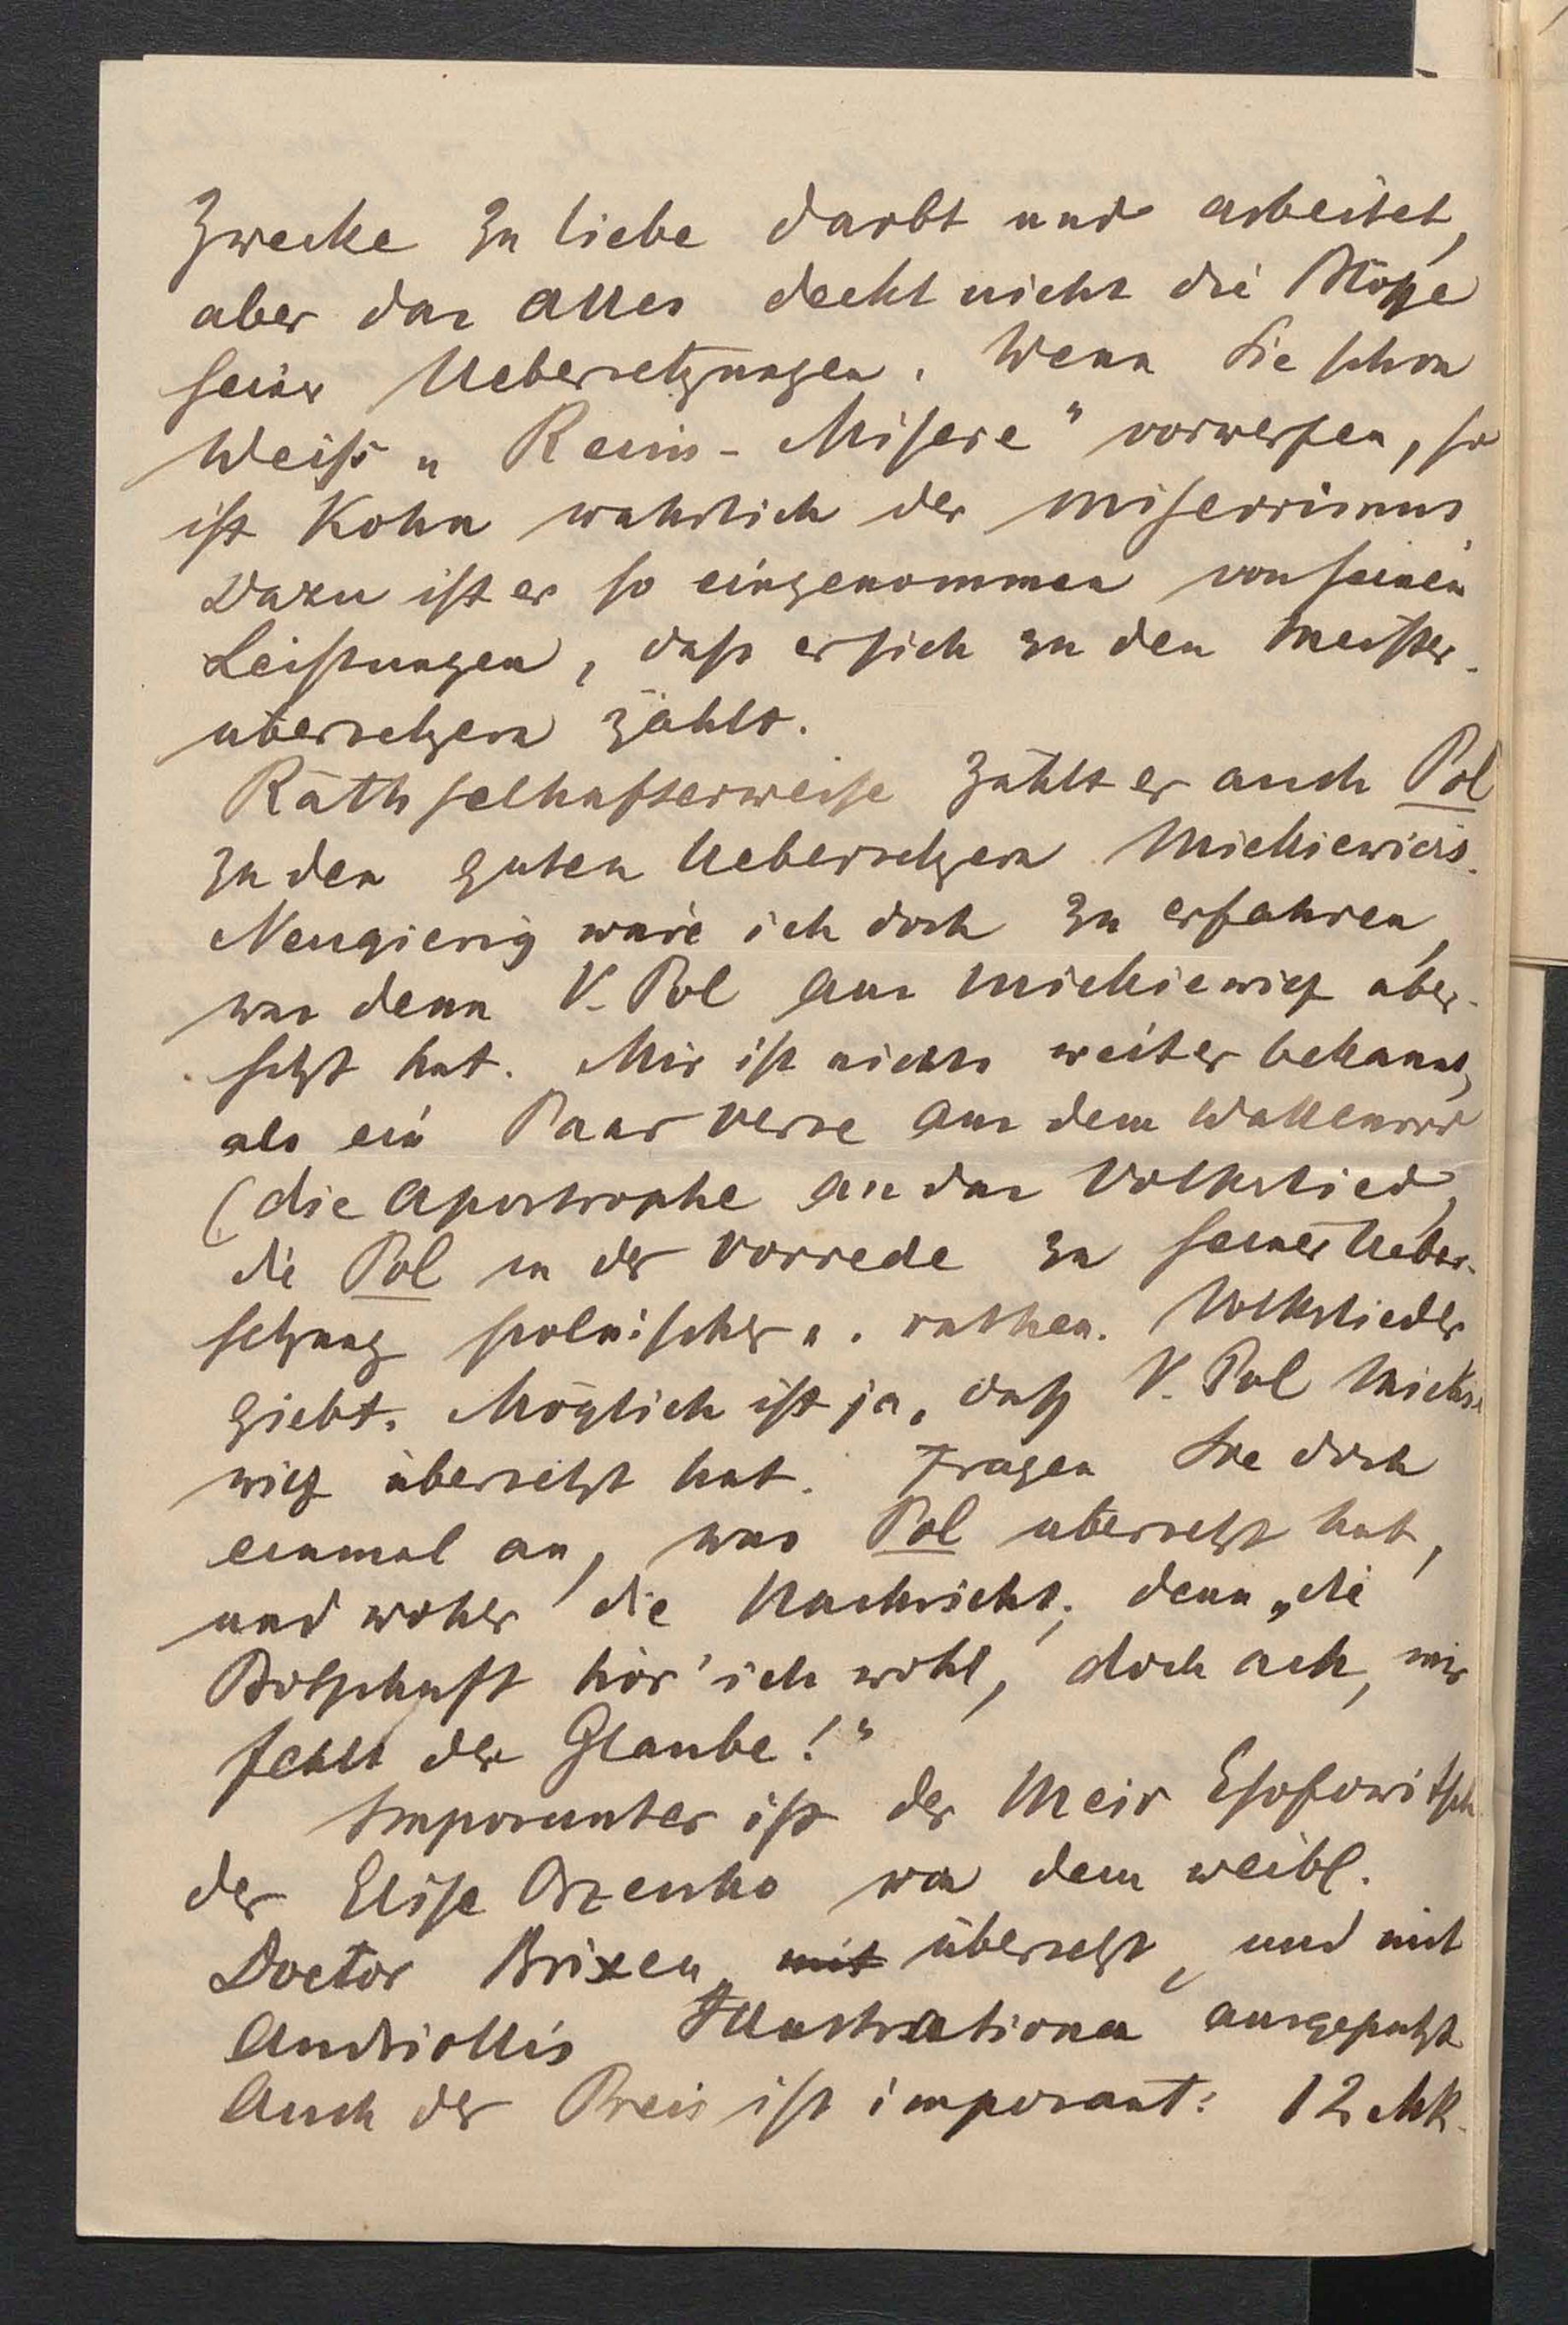 Zwecke zu liebe darbt und arbeitet,
aber das alles deckt nicht die Blöße
seiner Uebersetzungen. Wenn Sie schon
Weiß „Reim-Misere“ vorwerfen, so
ist Kohn wahrlich der miserrimus.
Dazu ist er so eingenommen von seinen
Leistungen, dass er sich zu den Meister-
übersetzern zählt.
Räthselhafterweise zählt er auch Pol
zu den guten Uebersetzern Mickiewicz's.
Neugierig wäre ich doch zu erfahren,
was denn V. Pol aus Mickiewicz über-
setzt hat. Mir ist nichts weiter bekannt,
als ein Paar Verse aus dem Wallenrod
(die Apostrophe an das Volkslied,
die Pol in der Vorrede zu seiner Ueber-
setzung polnischer u. ruthen. Volkslieder
giebt. Möglich ist ja, daß V. Pol Mickie-
wicz übersetzt hat. Fragen Sie doch
einmal an, was Pol übersetzt hat,
und woher die Nachricht; denn „die
Botschaft hör' ich wohl, doch ach, mir
fehlt der Glaube!“
Imposanter ist der Meir Esofowitsch
der Elise Orzesko von dem weibl.
Doctor Brixen, mit übersetzt, und mit
Andriollis Illustrationen ausgeputzt
Auch der Preis ist imposant: 12 Mk.